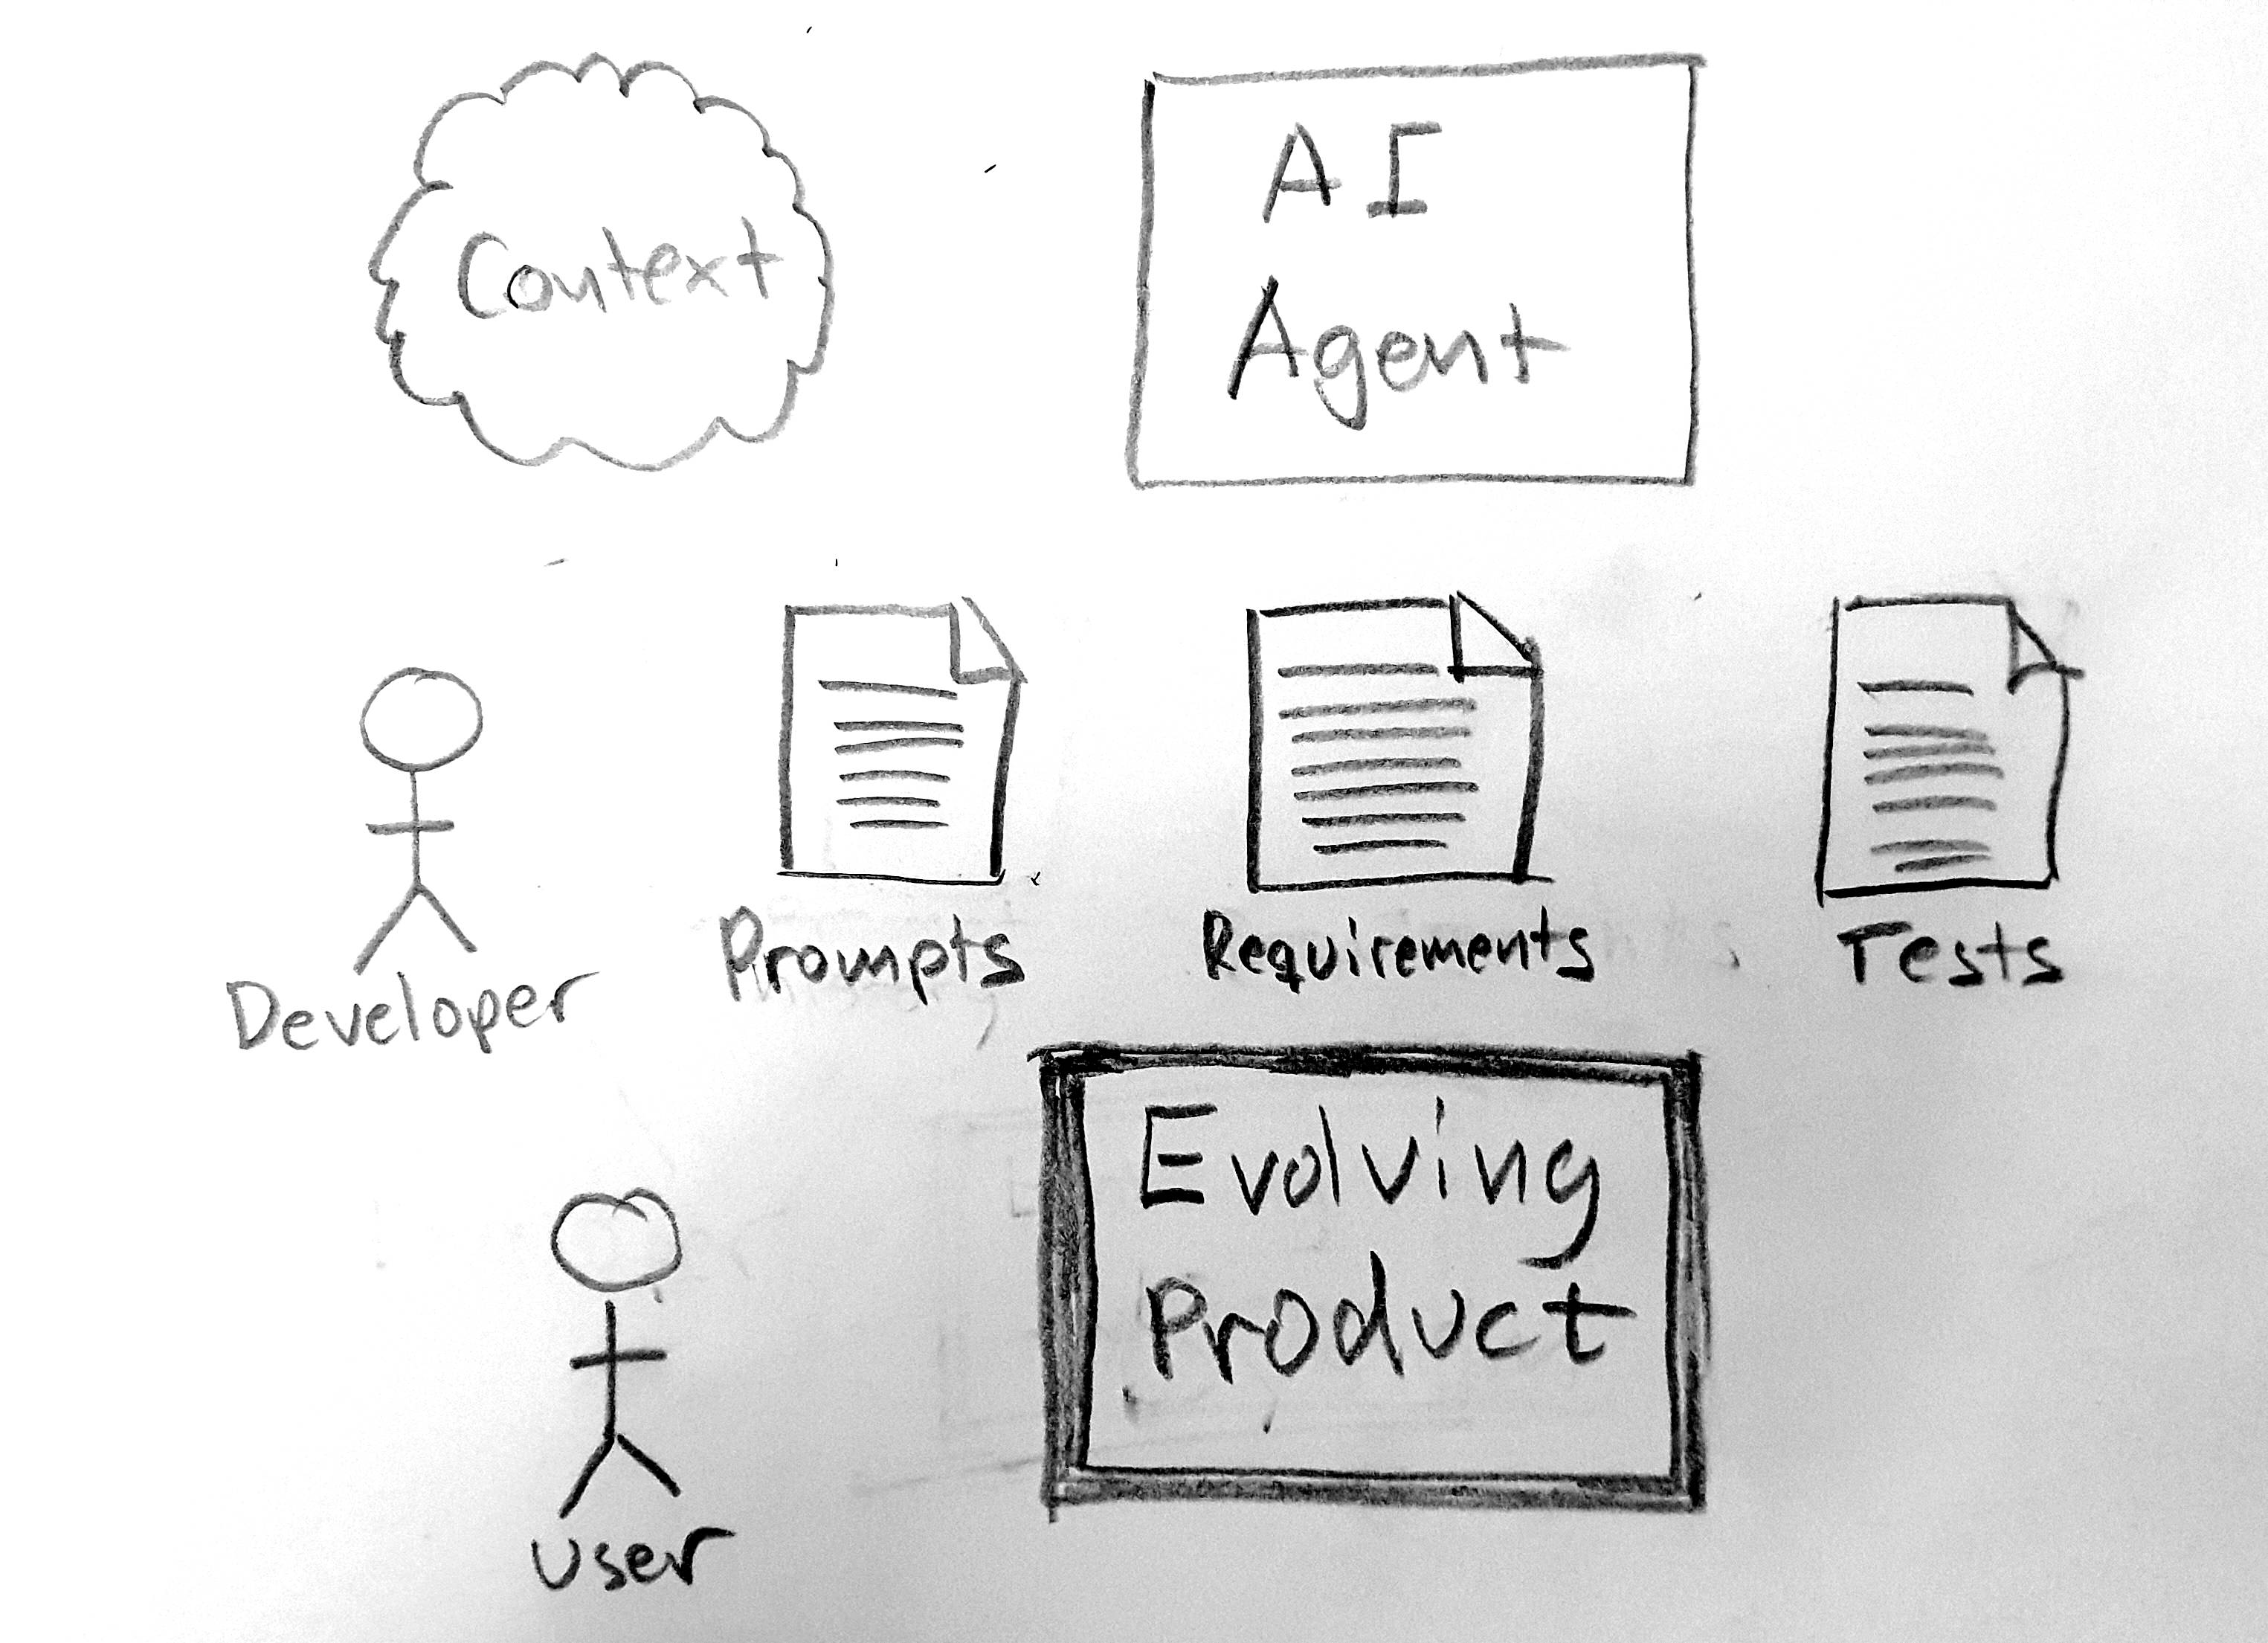 Context
AI
Agent
Developer
Prompts
Requirements
Tests
Evolving
Product
User